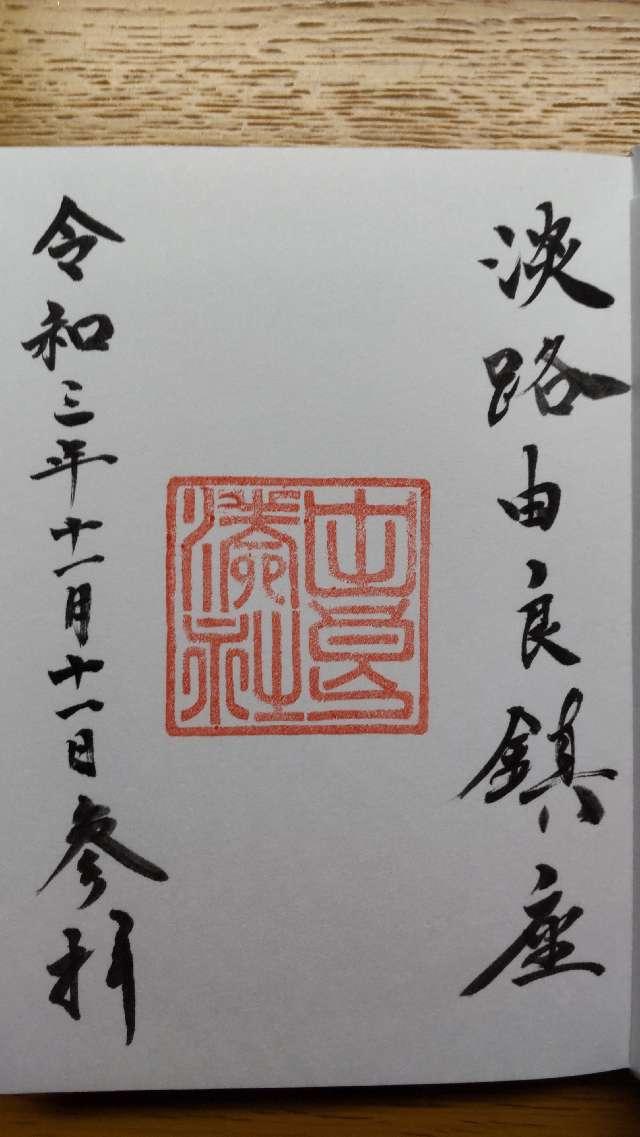 淡路由良鎮座
由良
湊社
令和三年十一月十一日参拝